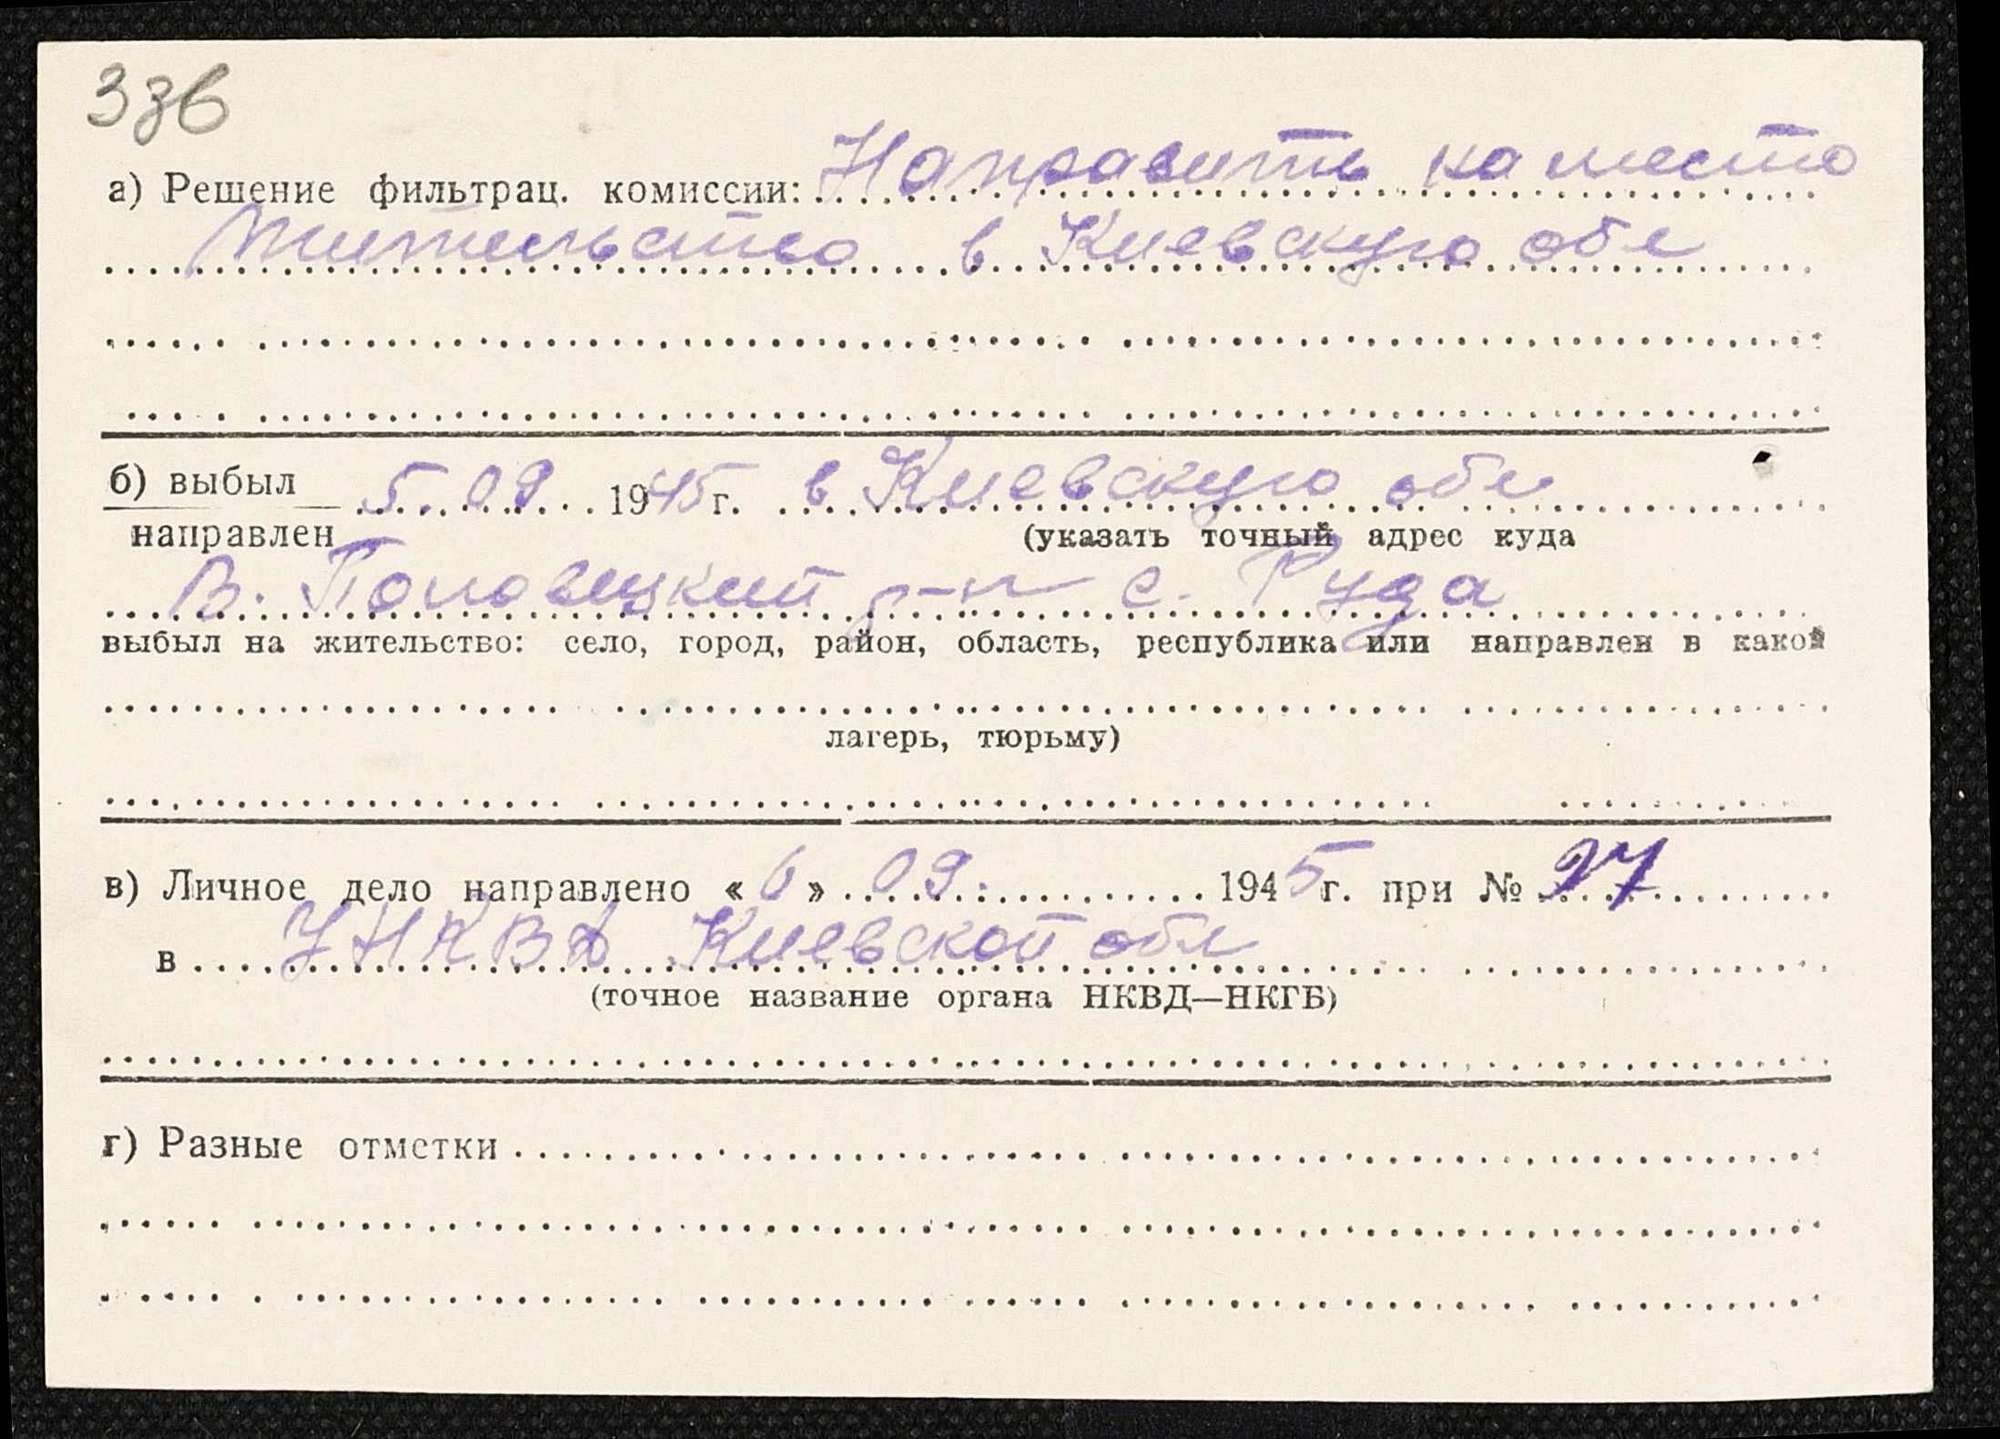 336
а) Решение фильтрац. комиссии: Направить на место
жительство в Киевскую обл
б) выбыл 5.09 1945 г. в Киевскую обл
направлен (указать точный адрес куда
В. Половецкий р-н с. Руда
выбыл на жительство: село, город, район, область, республика или направлен в какой
лагерь, тюрьму)
в) Личное дело направлено « 6 » 09. 1945 г. при № 27
в УНКВД Киевской обл
(точное название органа НКВД—НКГБ)
г) Разные отметки